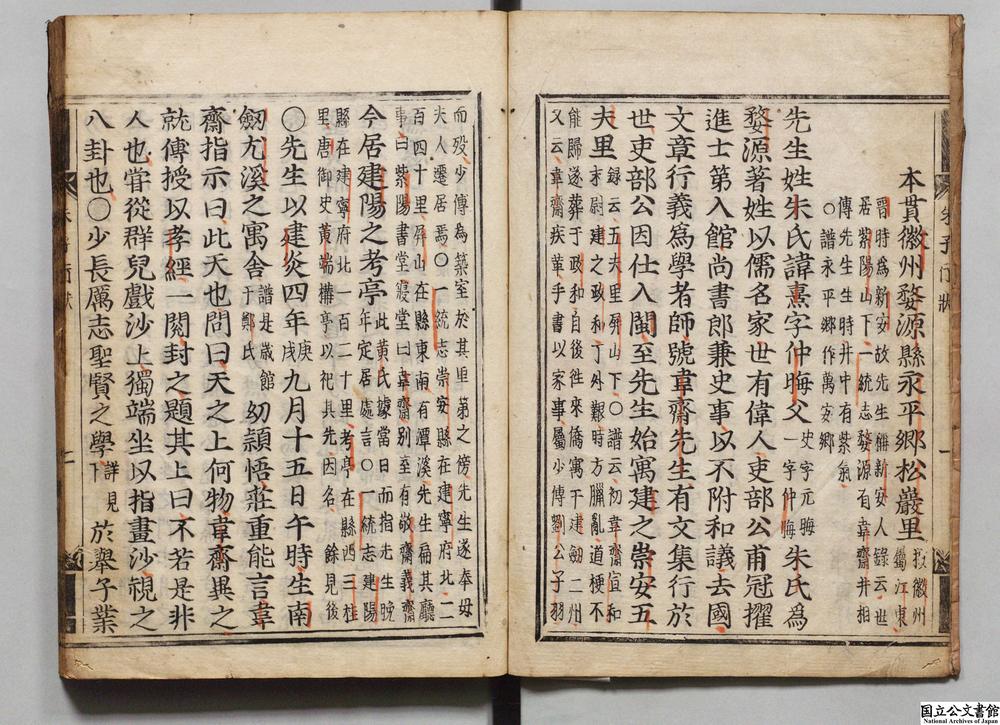 本貫徽州婺源縣永平鄉松巖里 按徽州屬江東
晋時爲新安故先生稱新安人錄云世
居紫陽山下一統志婺源有韋齋井相
傳先生生時井中有紫氣
○譜永平鄉作萬安鄉
先生姓朱氏諱熹字仲晦父 史字元晦一字仲晦 朱氏爲
婺源著姓以儒名家世有偉人吏部公甫冠擢
進士第入館尚書郎兼史事以不附和議去國
文章行義爲學者師號韋齋先生有文集行於
世吏部公因仕入閩至先生始寓建之崇安五
夫里 錄云五夫里屏山下○譜云初韋齋宣和
末尉建之政和丁外艱時方臘亂道梗不
能歸遂葬于政和自後徃來僑寓于建劒二州
又云韋齋疾革手書以家事屬少傅劉公子羽
朱子行狀
一
而殁少傅爲築室於其里第之傍先生遂奉母
夫人遷居焉○一統志崇安縣在建寧府北二
百四十里屏山在縣東南有潭溪先生扁其廳
事曰紫陽書堂寢堂曰韋齋别至有敬齋義齋
今居建陽之考亭 此黄氏據當日而指先生晚年定居處言○一統志建陽
縣在建寧府北一百二十里考亭在縣西三桂
里唐御史黄端構亭以祀其先因名 餘見後
○先生以建炎四年 庚戌 九月十五日午時生南
劒尤溪之寓舍 譜是歲館于鄭氏 幼穎悟莊重能言韋
齋指示曰此天也問曰天之上何物韋齋異之
就傅授以孝經一閱封之題其上曰不若是非
人也甞從群兒戲沙上獨端坐以指畫沙視之
八卦也○少長厲志聖賢之學 詳見下 於舉子業
朱子行狀
一
国立公文書館
National Archives of Japan